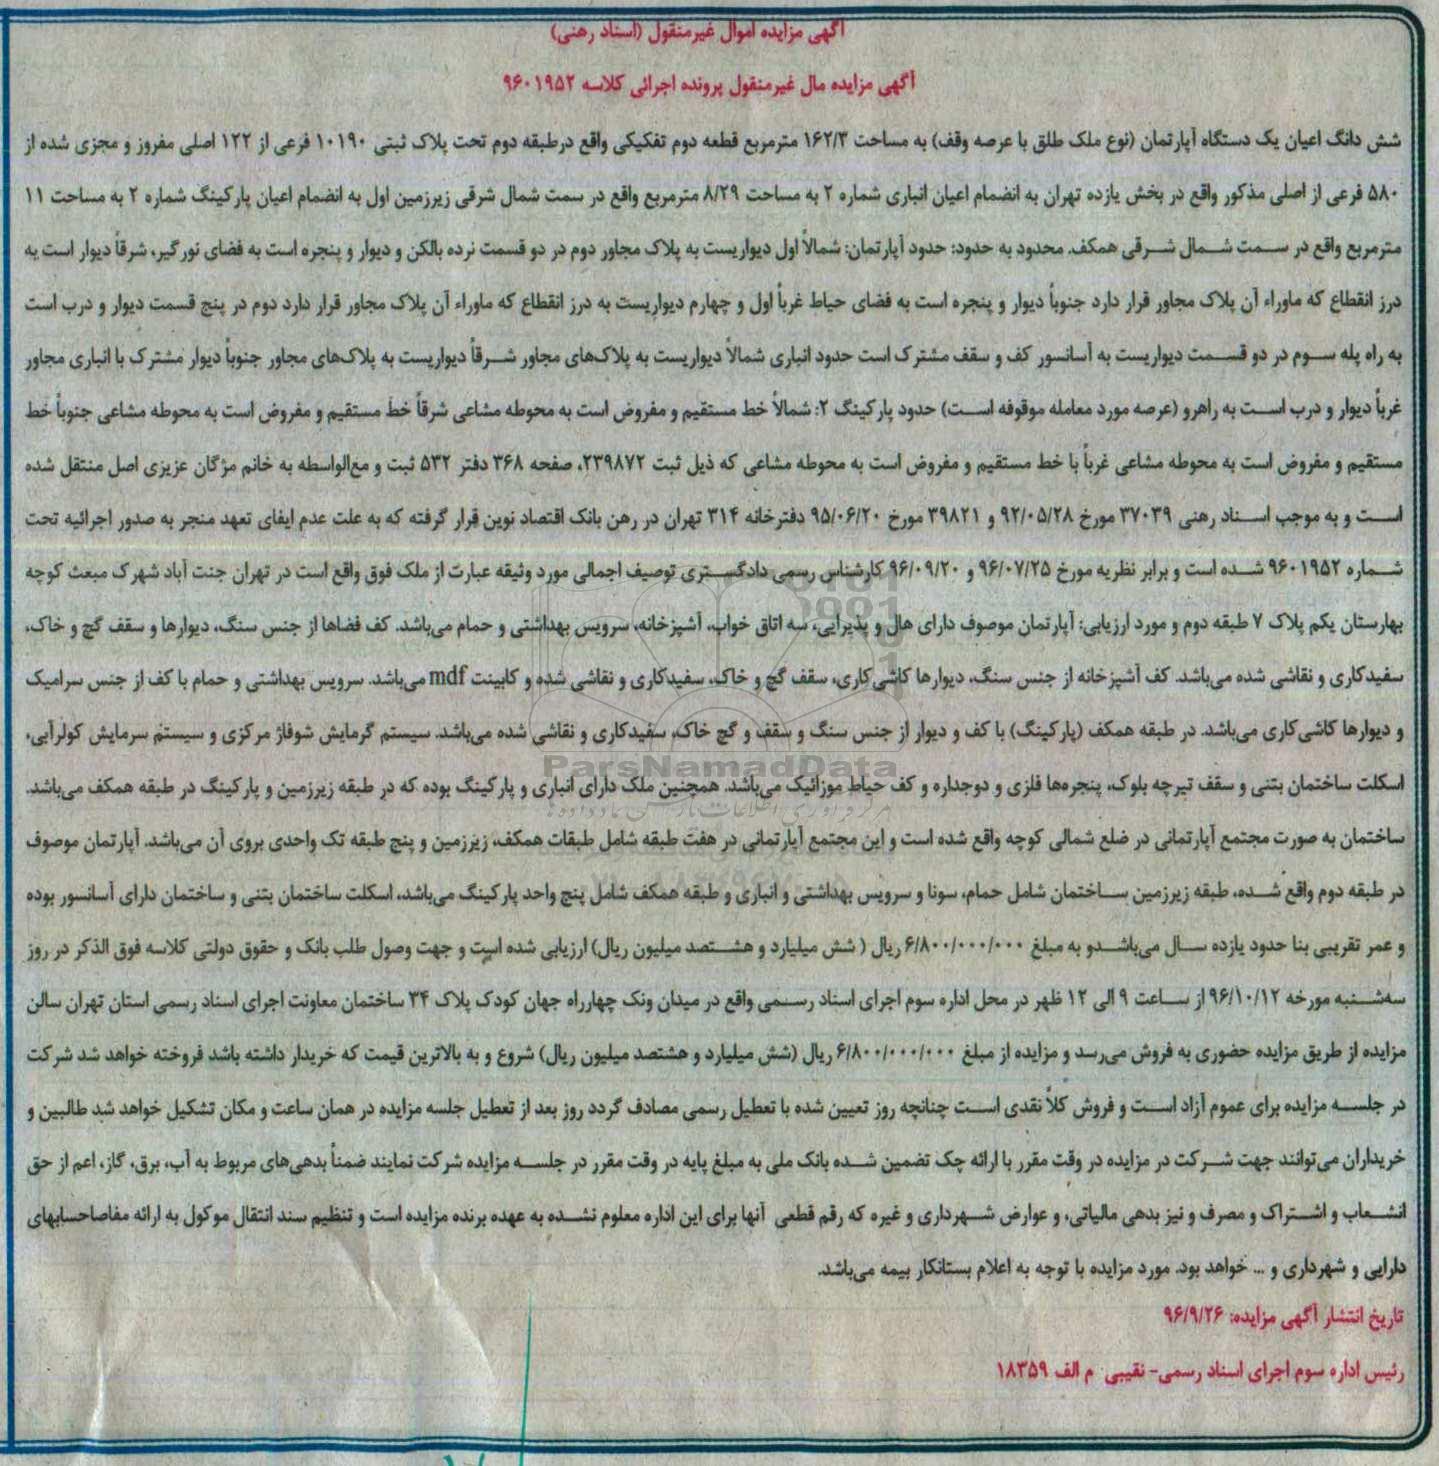 آگهی مزایده اموال غیرمنقول (اسناد رهنی)
آگهی مزایده مال غیرمنقول پرونده اجرائی کلاسه ۹۶۰۱۹۵۲
شش دانگ اعیان یک دستگاه آپارتمان (نوع ملک طلق با عرصه وقف) به مساحت ۱۶۲/۳ مترمربع قطعه دوم تفکیکی واقع درطبقه دوم تحت پلاک ثبتی ۱۰۱۹۰ فرعی از ۱۲۲ اصلی مفروز و مجزی شده از
۵۸۰ فرعی از اصلی مذکور واقع در بخش یازده تهران به انضمام اعیان انباری شماره ۲ به مساحت ۸/۲۹ مترمربع واقع در سمت شمال شرقی زیرزمین اول به انضمام اعیان پارکینگ شماره ۲ به مساحت ۱۱
مترمربع واقع در سمت شمال شرقی همکف. محدود به حدود: حدود آپارتمان: شمالاً اول دیواریست به پلاک مجاور دوم در دو قسمت نرده بالکن و دیوار و پنجره است به فضای نورگیر، شرقاً دیوار است به
درز انقطاع که ماوراء آن پلاک مجاور قرار دارد جنوباً دیوار و پنجره است به فضای حیاط غرباً اول و چهارم دیواریست به درز انقطاع که ماوراء آن پلاک مجاور قرار دارد دوم در پنج قسمت دیوار و درب است
به راه پله سوم در دو قسمت دیواریست به آسانسور کف و سقف مشترک است حدود انباری شمالاً دیواریست به پلاک‌های مجاور شرقاً دیواریست به پلاک‌های مجاور جنوباً دیوار مشترک با انباری مجاور
غرباً دیوار و درب است به راهرو (عرصه مورد معامله موقوفه است) حدود پارکینگ ۲: شمالاً خط مستقیم و مفروض است به محوطه مشاعی شرقاً خط مستقیم و مفروض است به محوطه مشاعی جنوباً خط
مستقیم و مفروض است به محوطه مشاعی غرباً با خط مستقیم و مفروض است به محوطه مشاعی که ذیل ثبت ۲۳۹۸۷۲، صفحه ۳۶۸ دفتر ۵۳۲ ثبت و مع‌الواسطه به خانم مژگان عزیزی اصل منتقل شده
است و به موجب اسناد رهنی ۳۷۰۳۹ مورخ ۹۲/۰۵/۲۸ و ۳۹۸۲۱ مورخ ۹۵/۰۶/۲۰ دفترخانه ۳۱۴ تهران در رهن بانک اقتصاد نوین قرار گرفته که به علت عدم ایفای تعهد منجر به صدور اجرائیه تحت
شماره ۹۶۰۱۹۵۲ شده است و برابر نظریه مورخ ۹۶/۰۷/۲۵ و ۹۶/۰۹/۲۰ کارشناس رسمی دادگستری توصیف اجمالی مورد وثیقه عبارت از ملک فوق واقع است در تهران جنت آباد شهرک مبعث کوچه
بهارستان یکم پلاک ۷ طبقه دوم و مورد ارزیابی: آپارتمان موصوف دارای هال و پذیرایی، سه اتاق خواب، آشپزخانه، سرویس بهداشتی و حمام می‌باشد. کف فضاها از جنس سنگ، دیوارها و سقف گچ و خاک،
سفیدکاری و نقاشی شده می‌باشد. کف آشپزخانه از جنس سنگ، دیوارها کاشی‌کاری، سقف گچ و خاک، سفیدکاری و نقاشی شده و کابینت mdf می‌باشد. سرویس بهداشتی و حمام با کف از جنس سرامیک
و دیوارها کاشی‌کاری می‌باشد. در طبقه همکف (پارکینگ) با کف و دیوار از جنس سنگ و سقف و گچ خاک، سفیدکاری و نقاشی شده می‌باشد. سیستم گرمایش شوفاژ مرکزی و سیستم سرمایش کولرآبی،
ParsNamadData
اسکلت ساختمان بتنی و سقف تیرچه بلوک، پنجره‌ها فلزی و دوجداره و کف حیاط موزائیک می‌باشد. همچنین ملک دارای انباری و پارکینگ بوده که در طبقه زیرزمین و پارکینگ در طبقه همکف می‌باشد.
ساختمان به صورت مجتمع آپارتمانی در ضلع شمالی کوچه واقع شده است و این مجتمع آپارتمانی در هفت طبقه شامل طبقات همکف، زیرزمین و پنج طبقه تک واحدی بروی آن می‌باشد. آپارتمان موصوف
در طبقه دوم واقع شده، طبقه زیرزمین ساختمان شامل حمام، سونا و سرویس بهداشتی و انباری و طبقه همکف شامل پنج واحد پارکینگ می‌باشد، اسکلت ساختمان بتنی و ساختمان دارای آسانسور بوده
و عمر تقریبی بنا حدود یازده سال می‌باشدو به مبلغ ۶/۸۰۰/۰۰۰/۰۰۰ ریال ( شش میلیارد و هشتصد میلیون ریال) ارزیابی شده است و جهت وصول طلب بانک و حقوق دولتی کلاسه فوق الذکر در روز
سه‌شنبه مورخه ۹۶/۱۰/۱۲ از ساعت ۹ الی ۱۲ ظهر در محل اداره سوم اجرای اسناد رسمی واقع در میدان ونک چهارراه جهان کودک پلاک ۳۴ ساختمان معاونت اجرای اسناد رسمی استان تهران سالن
مزایده از طریق مزایده حضوری به فروش می‌رسد و مزایده از مبلغ ۶/۸۰۰/۰۰۰/۰۰۰ ریال (شش میلیارد و هشتصد میلیون ریال) شروع و به بالاترین قیمت که خریدار داشته باشد فروخته خواهد شد شرکت
در جلسه مزایده برای عموم آزاد است و فروش کلاً نقدی است چنانچه روز تعیین شده با تعطیل رسمی مصادف گردد روز بعد از تعطیل جلسه مزایده در همان ساعت و مکان تشکیل خواهد شد طالبین و
خریداران می‌توانند جهت شرکت در مزایده در وقت مقرر با ارائه چک تضمین شده بانک ملی به مبلغ پایه در وقت مقرر در جلسه مزایده شرکت نمایند ضمناً بدهی‌های مربوط به آب، برق، گاز، اعم از حق
انشعاب و اشتراک و مصرف و نیز بدهی مالیاتی، و عوارض شهرداری و غیره که رقم قطعی آنها برای این اداره معلوم نشده به عهده برنده مزایده است و تنظیم سند انتقال موکول به ارائه مفاصاحسابهای
دارایی و شهرداری و ... خواهد بود. مورد مزایده با توجه به اعلام بستانکار بیمه می‌باشد.
تاریخ انتشار آگهی مزایده: ۹۶/۹/۲۶
رئیس اداره سوم اجرای اسناد رسمی- نقیبی م الف ۱۸۳۵۹